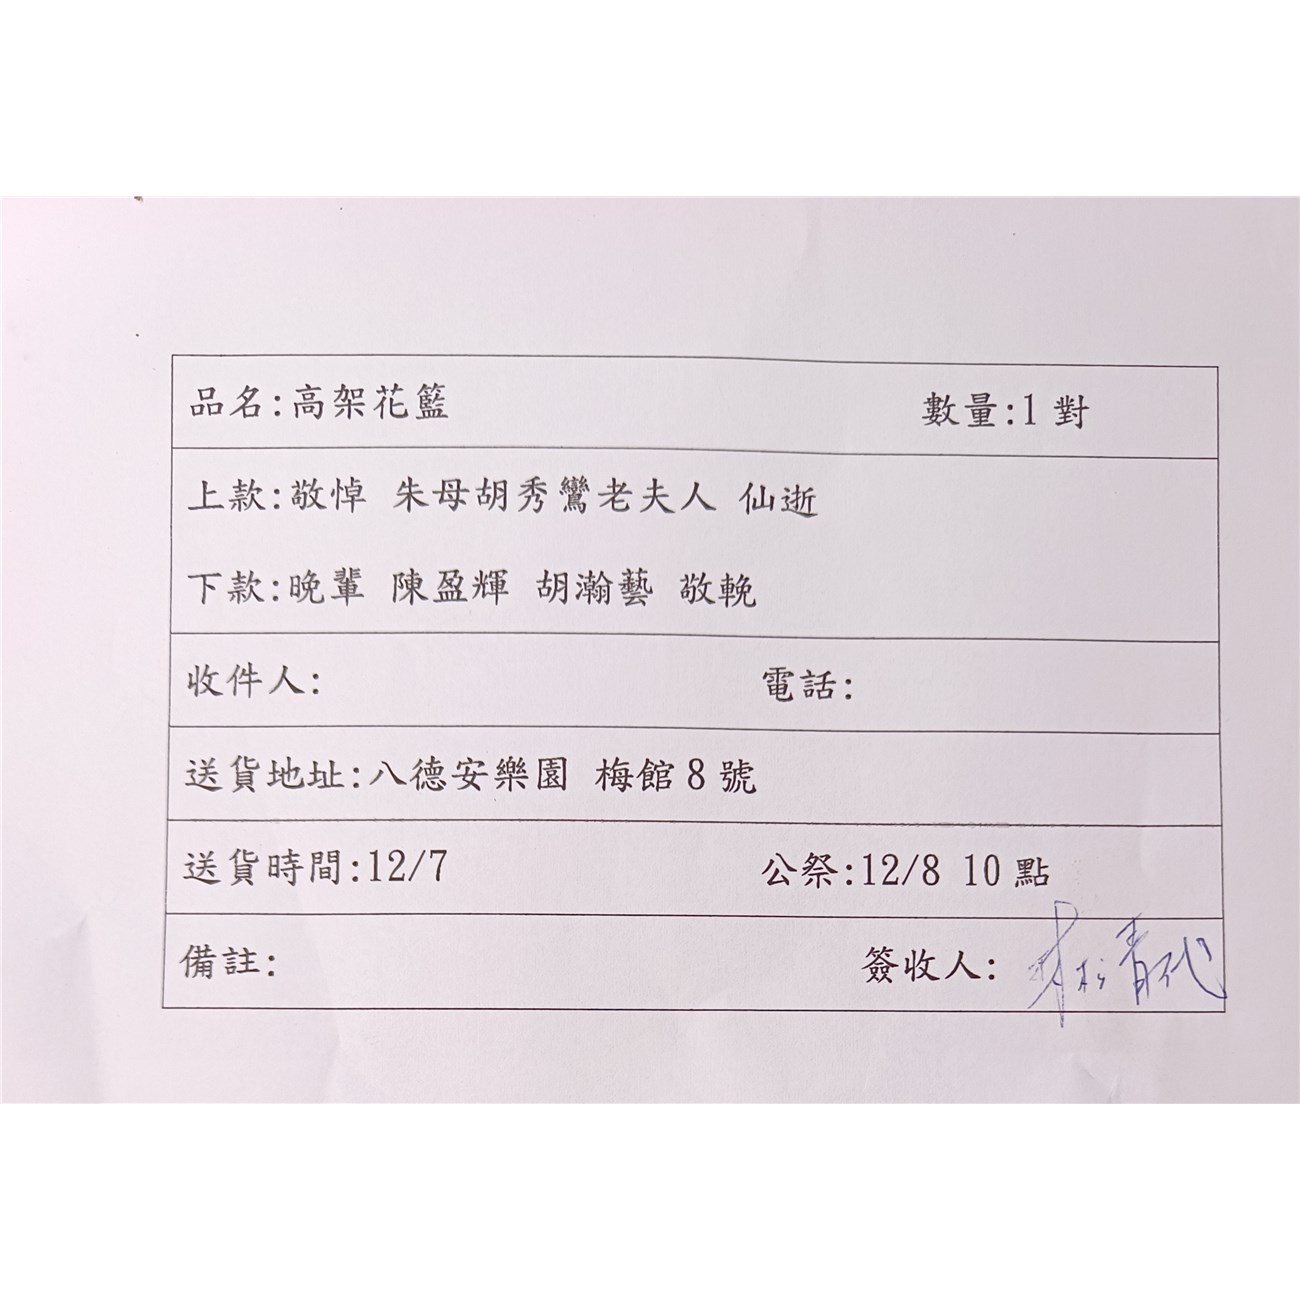 品名:高架花籃 數量:1 對
上款:敬悼 朱母胡秀鸞老夫人 仙逝
下款:晚輩 陳盈輝 胡瀚藝 敬輓
收件人: 電話:
送貨地址:八德安樂園 梅館 8 號
送貨時間:12/7 公祭:12/8 10 點
備註: 簽收人: